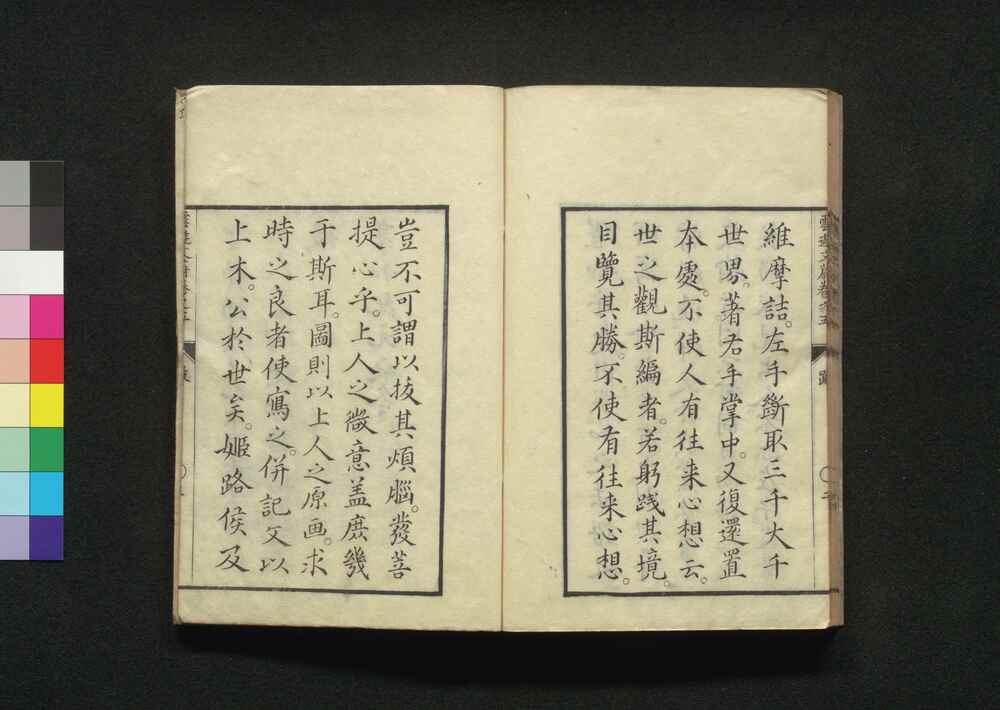 維摩詰。左手斷取三千大千
世界。著右手掌中。又復還置
本處。不使人有往来心想云。
世之觀斯編者。若躬踐其境。
目覽其勝。不使有往来心想。
豈不可謂以拔其煩腦。發菩
提心乎。上人之微意盖庶幾
于斯耳。圖則以上人之原画。求
時之良者使寫之。併記文以
上木。公於世矣。姬路侯及